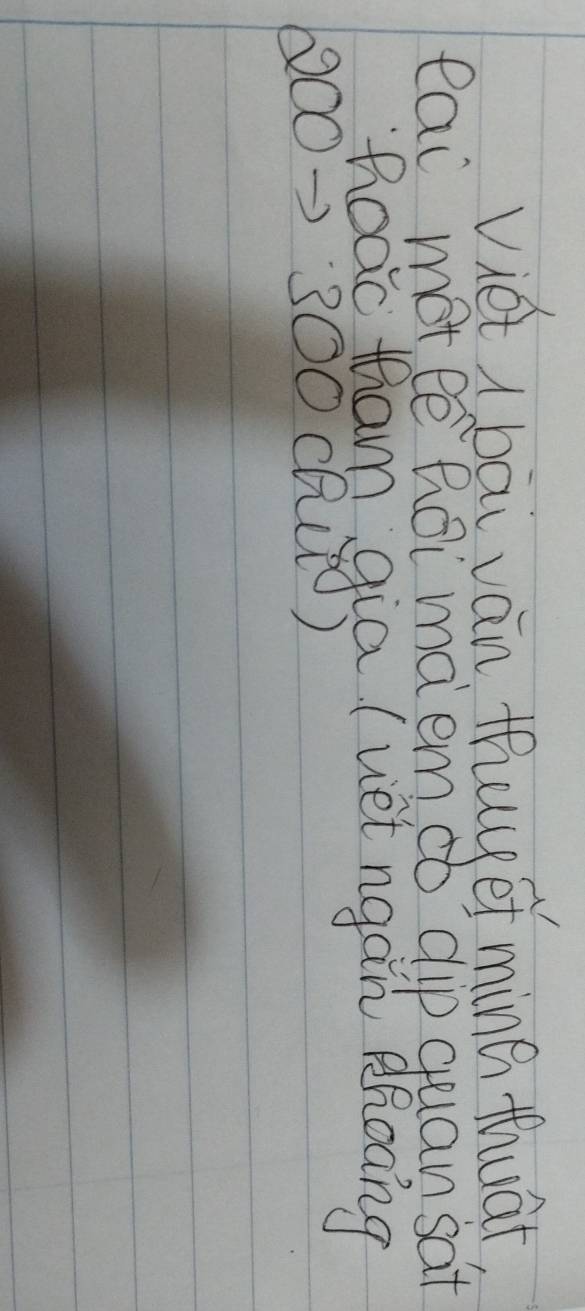 Viết 1 bài văn thuyết minh thuật
lại một lễ hội mà em có dịp quan sát
hoặc tham gia. (viết ngắn khoảng
200 → 300 chữ)